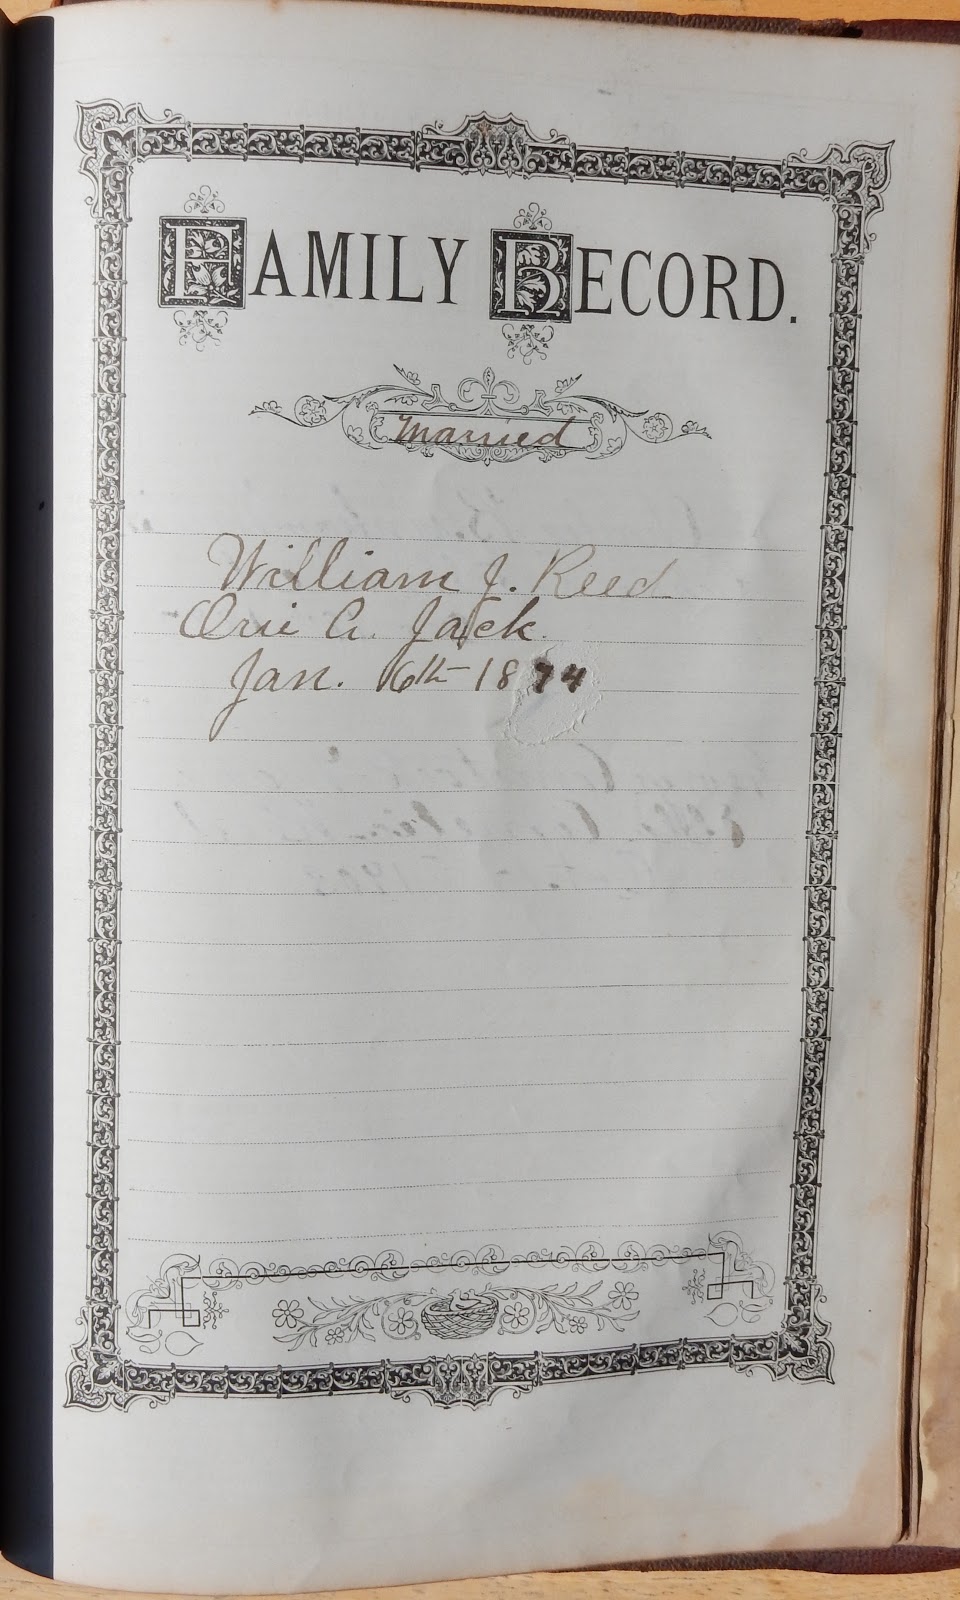 FAMILY RECORD.
Married
William J. Reed
Orie A. Jack
Jan. 16th 1874